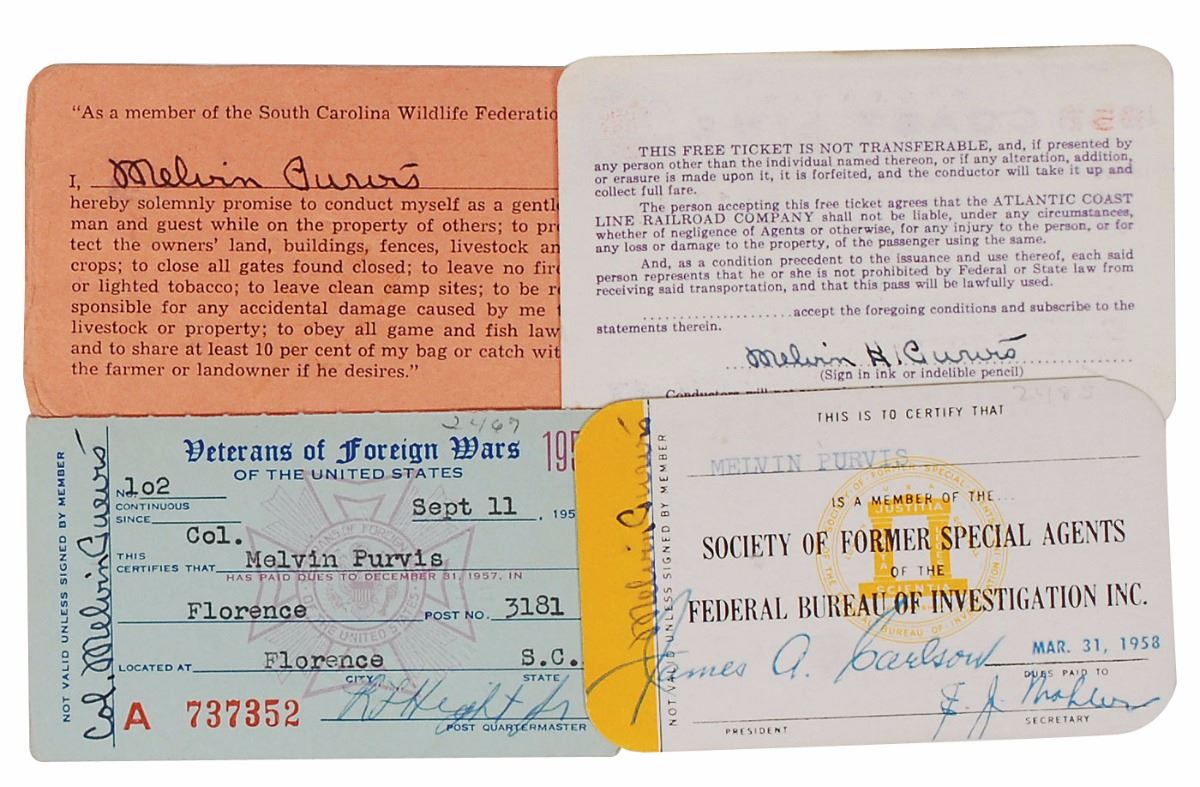 "As a member of the South Carolina Wildlife Federatio
I, Melvin Purvis
hereby solemnly promise to conduct myself as a gentle
man and guest while on the property of others; to pr
tect the owners' land, buildings, fences, livestock an
crops; to close all gates found closed; to leave no fire
or lighted tobacco; to leave clean camp sites; to be r
sponsible for any accidental damage caused by me
livestock or property; to obey all game and fish law
and to share at least 10 per cent of my bag or catch wit
the farmer or landowner if he desires."
THIS FREE TICKET IS NOT TRANSFERABLE, and, if presented by
any person other than the individual named thereon, or if any alteration, addition,
or erasure is made upon it, it is forfeited, and the conductor will take it up and
collect full fare.
The person accepting this free ticket agrees that the ATLANTIC COAST
LINE RAILROAD COMPANY shall not be liable, under any circumstances,
whether of negligence of Agents or otherwise, for any injury to the person, or for
any loss or damage to the property, of the passenger using the same.
And, as a condition precedent to the issuance and use thereof, each said
person represents that he or she is not prohibited by Federal or State law from
receiving said transportation, and that this pass will be lawfully used.
....................accept the foregoing conditions and subscribe to the
statements therein.
Melvin H. Purvis
(Sign in ink or indelible pencil)
Conductors will
2467
Veterans of Foreign Wars 195
OF THE UNITED STATES
No. 102
CONTINUOUS
SINCE Sept 11, 195
Col.
THIS
CERTIFIES THAT Melvin Purvis
HAS PAID DUES TO DECEMBER 31, 1957, IN
Florence POST NO. 3181
LOCATED AT Florence S.C.
CITY STATE
A 737352
POST QUARTERMASTER
NOT VALID UNLESS SIGNED BY MEMBER
Col. Melvin Purvis
VETERANS OF FOREIGN WARS OF THE UNITED STATES
2485
THIS IS TO CERTIFY THAT
MELVIN PURVIS
IS A MEMBER OF THE...
SOCIETY OF FORMER SPECIAL AGENTS
OF THE
FEDERAL BUREAU OF INVESTIGATION INC.
James A. Carlson MAR. 31, 1958
DUES PAID TO
PRESIDENT SECRETARY
Melvin Purvis
NOT VALID UNLESS SIGNED BY MEMBER
JUSTITIA
SCIENTIA